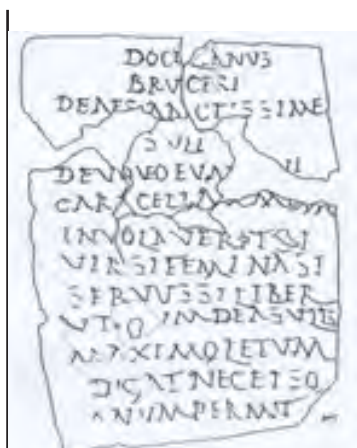 DOCILIANVS
BRVCERI
DEAESANCTISSIME
SVLI
DEVOVEOEVM
CARACELLAM
INVOLAVERITSI
VIRSIFEMINASI
SERVVSSILIBER
DEASVLIS
MAXIMOLETVM
DIGATNECEISO
MNVMPERMIT